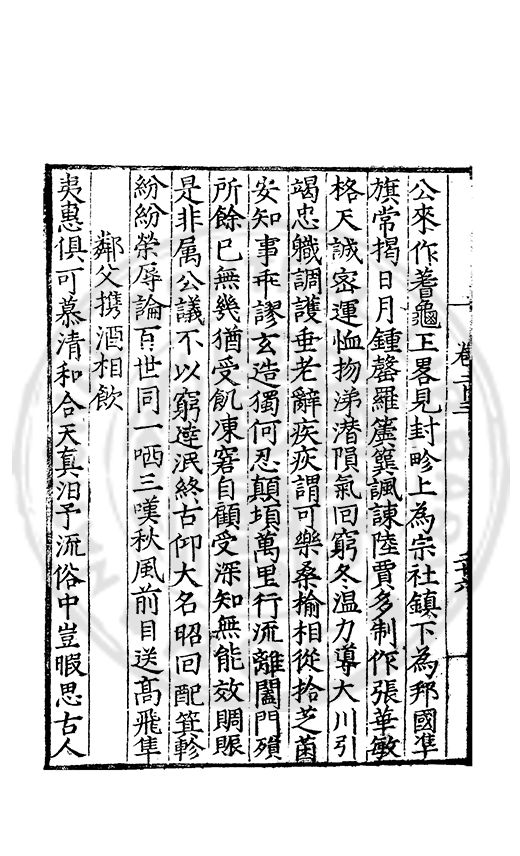 公來作蓍龜王畧見封畛上為宗社鎮下為邦國準
旗常揭日月鍾罄羅簴簨諷諫陸賈多制作張華敏
格天誠密運恤物涕潛隕氣回窮冬温力導大川引
竭忠軄調護垂老辭疾疢謂可樂桑榆相從拾芝菌
安知事乖謬玄造獨何忍顛頊萬里行流離闔門殞
所餘已無幾猶受飢凍窘自顧受深知無能效賙賑
是非属公議不以窮達泯終古仰大名昭回配箕軫
紛紛榮辱論百世同一哂三嘆秋風前目送髙飛隼
鄰父携酒相飲
夷惠俱可慕清和合天真汨予流俗中豈暇思古人